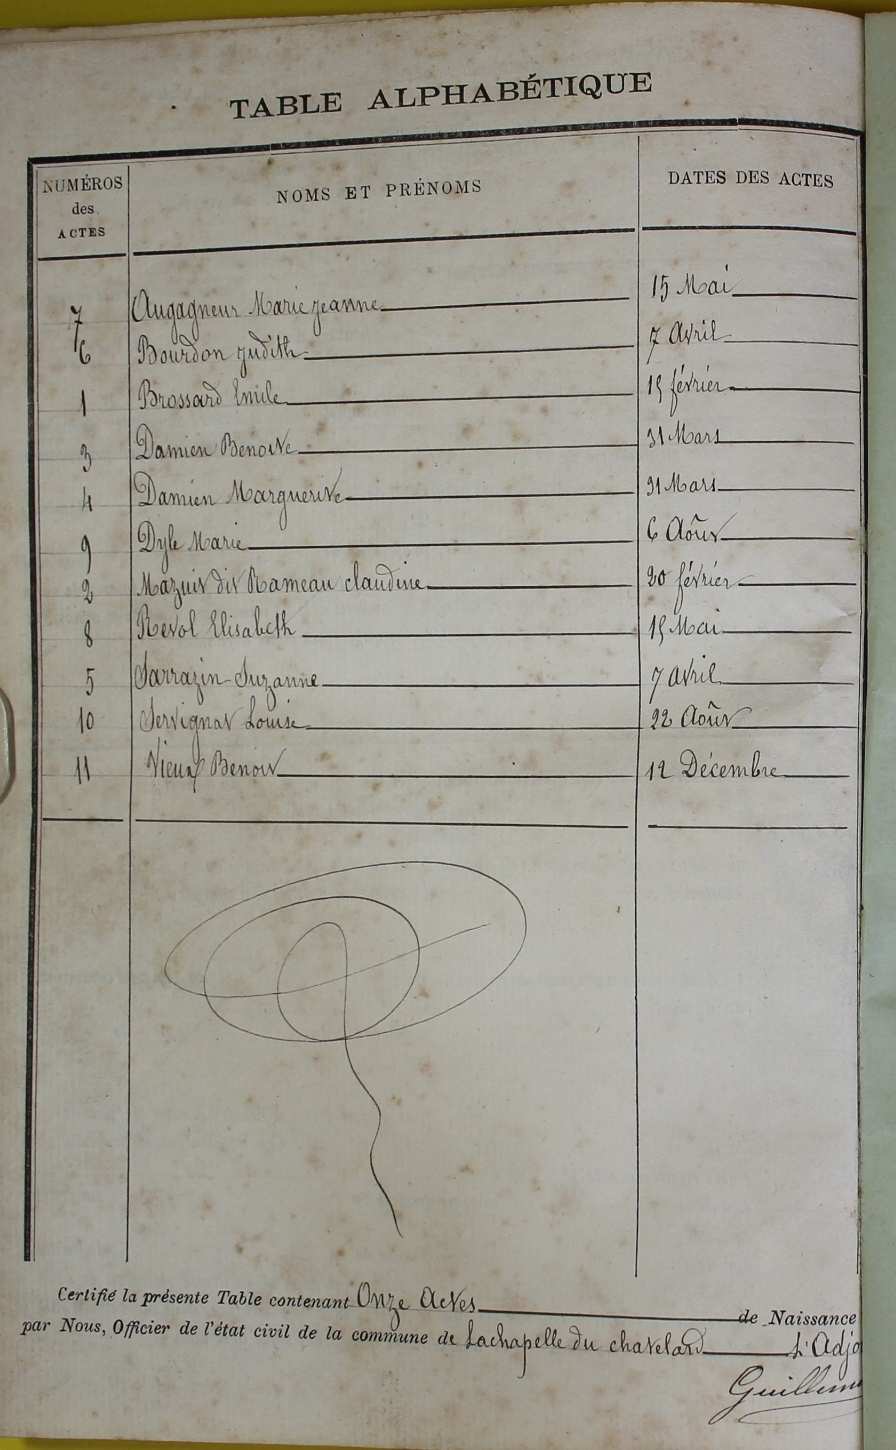 TABLE ALPHABÉTIQUE
NUMÉROS des ACTES NOMS ET PRÉNOMS DATES DES ACTES
7 Augagneur Marie Jeanne 15 Mai
6 Bourdon Judith 7 Avril
1 Brossard Emile 15 février
3 Damien Benoite 31 Mars
4 Damien Marguerite 31 Mars
9 Dyle Marie 6 Août
2 Mazuit dit Rameau claudine 20 février
8 Revol Elisabeth 15 Mai
5 Sarrazin Suzanne 7 avril
10 Servignat Louise 22 Août
11 Vieux Benoit 12 Décembre
Certifié la présente Table contenant Onze Actes de Naissance
par Nous, Officier de l'état civil de la commune de Lachapelle du chatelard L'Adjo